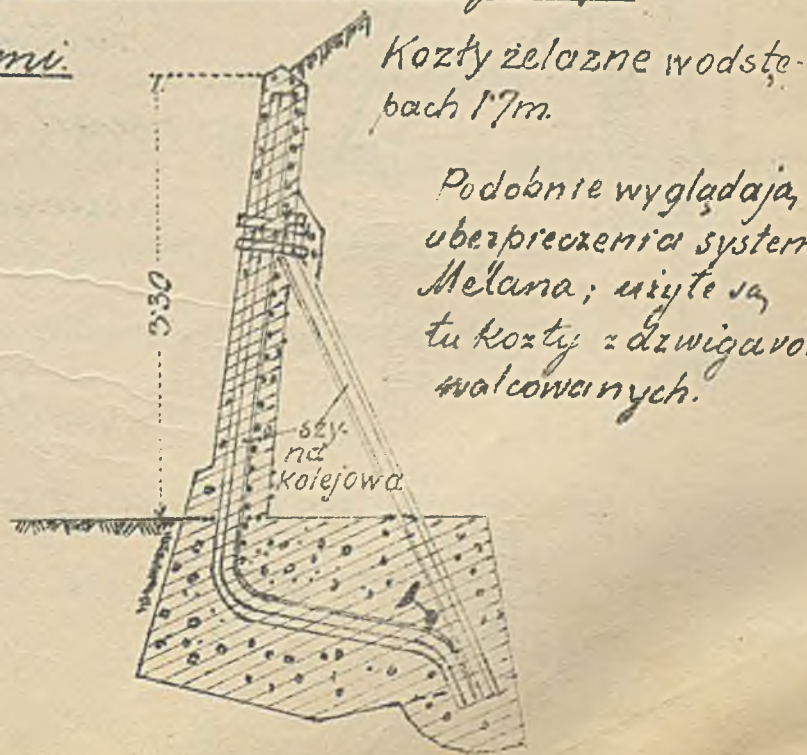 mi.
Kozły żelazne w odstę-
bach 1·7m.
Podobnie wyglądają
ubezpieczenia system
Melana; użyte są
tu kozły z dzwigaro
walcowanych.
3·30
szy-
na
kolejowa